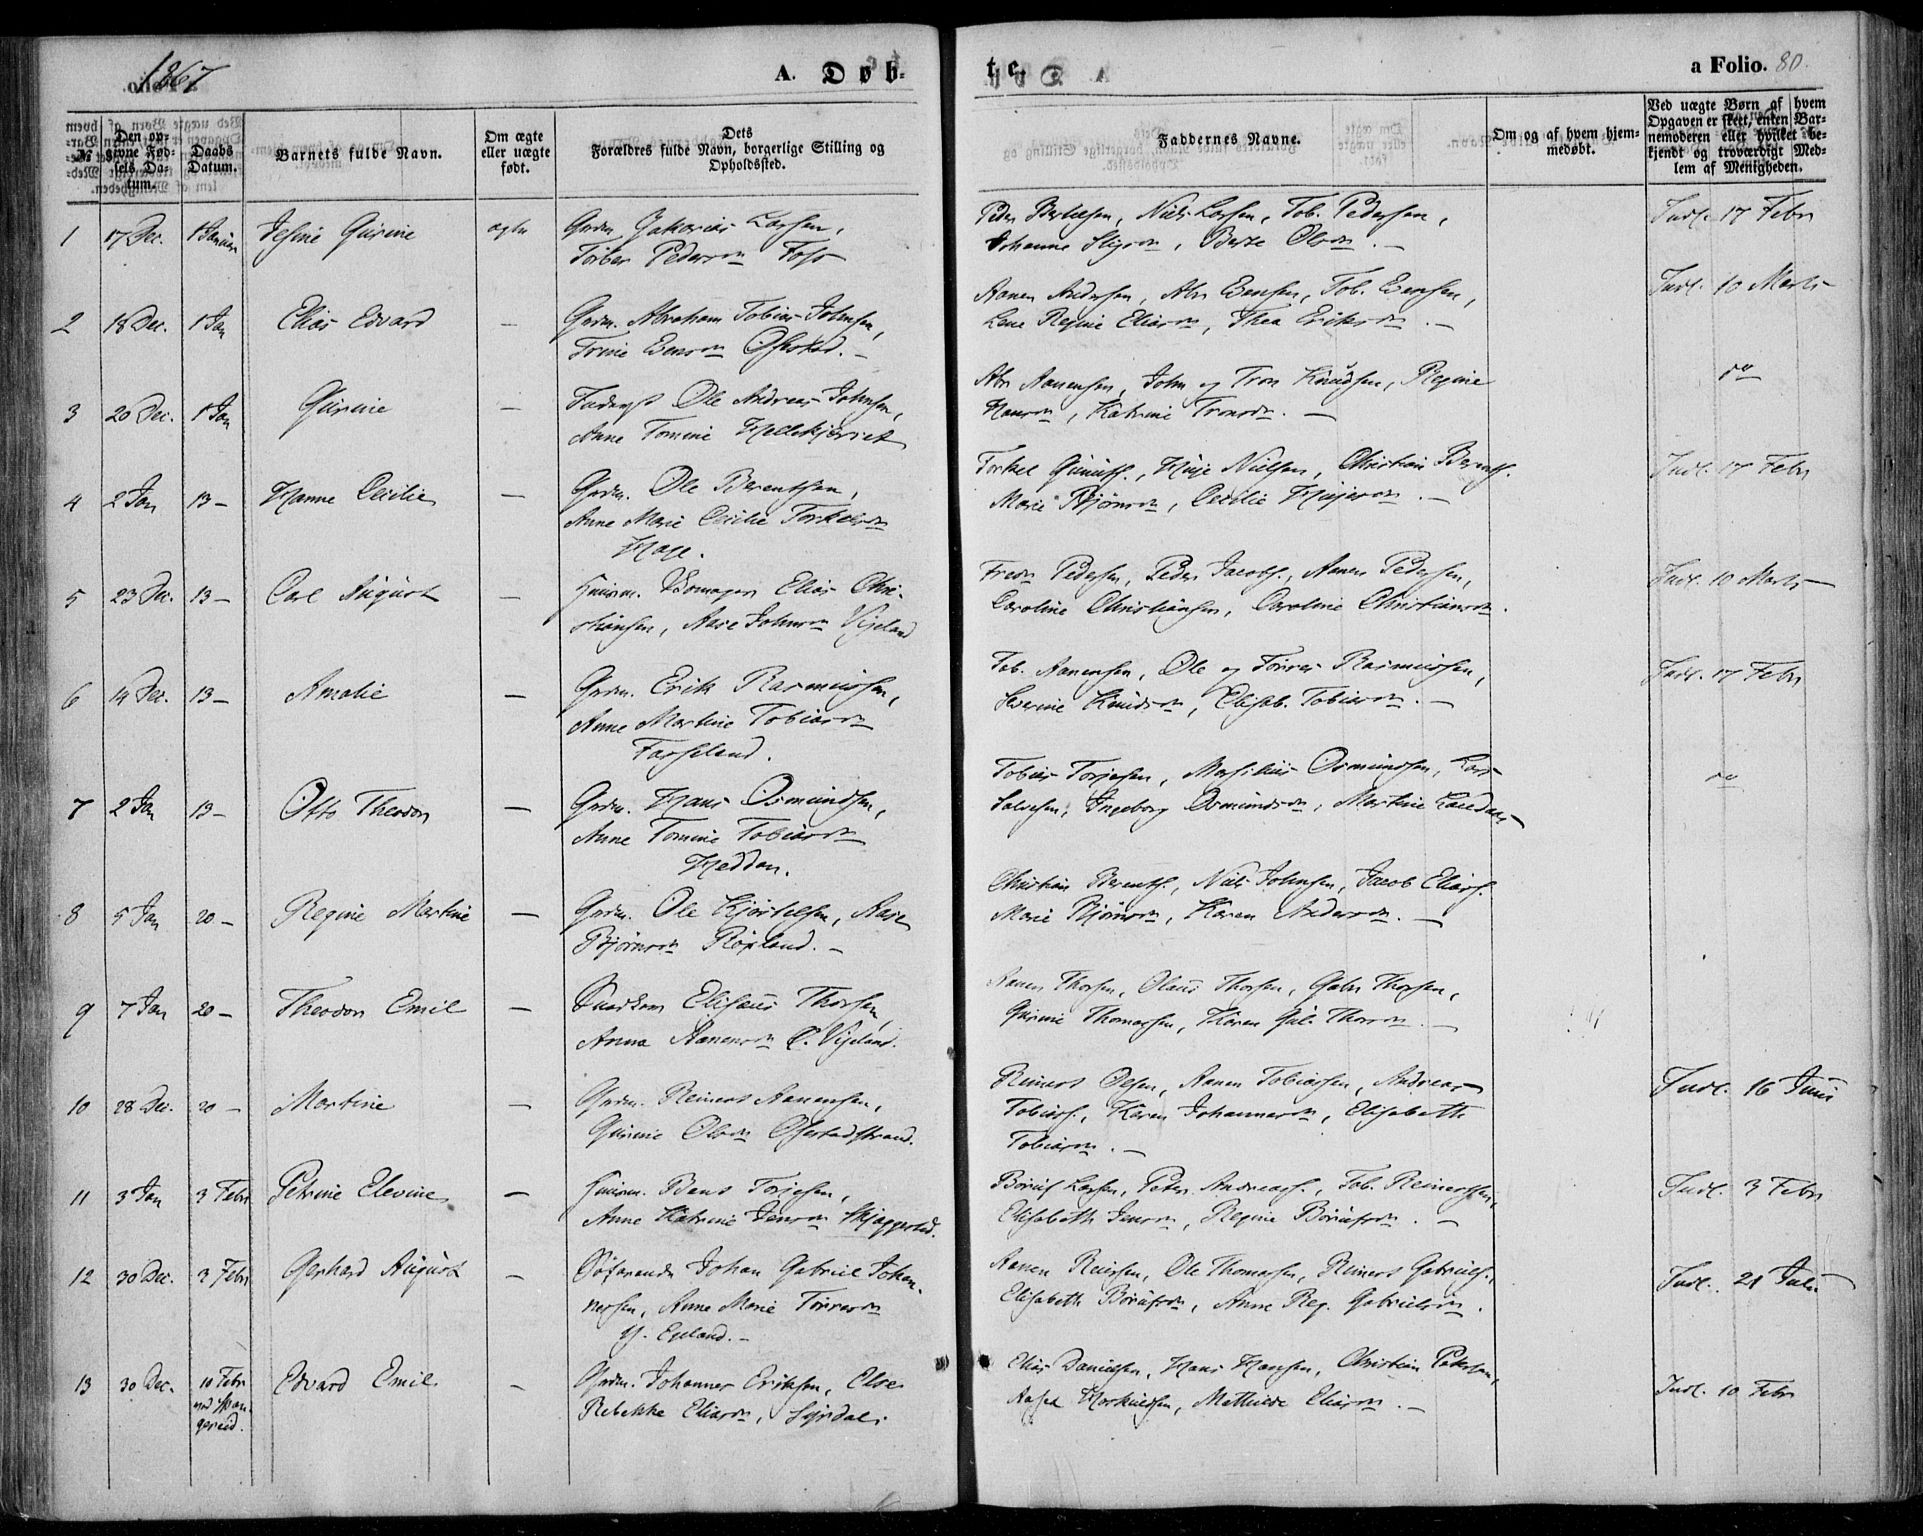 1867
A. Døb-
te.
a Folio. 80.
№
Den op-
givne Fød-
sels Da-
tum.
Daabs
Datum.
Barnets fulde Navn.
Om ægte
eller uægte
født.
Dets
Forældres fulde Navn, borgerlige Stilling og
Opholdssted.
Faddernes Navne.
Om og af hvem hjem-
medøbt.
Ved uægte Børn af hvem
Opgaven er skeet, enten Bar-
nemoderen eller hvilket be-
kjendt og troværdigt Med-
lem af Menigheden.
1 17 Dec. 1 Januar Jesine Gurine ægte Grdm. Zakarias Larsen,
Torber Pedersdr Foss
Peder Bertelsen, Niels Larsen, Tob. Pedersen,
Johanne Stigsdr, Berte Olsdr. —
Indl. 17 Febr
2 18 Dec. 1 Jan Elias Edvard — Grdm. Abraham Tobias Johnsen,
Trine Bensdr Ofstad. —
Aanen Andersen, Abr Bensen, Tob. Bensen,
Lene Regine Eliasdr, Thea Eriksdr. —
Indl. 10 Marts
3 20 Dec. 1 Jan Gurine — Ole Andreas Johnsen,
Anne Tomine
Abr Aanensen, John og Tron Knudsen, Regine
Hansdr, Katrine Tronsdr. —
do
4 2 Jan 13 — Hanne Cecilie — Grdm. Ole Berentsen,
Anne Marie Cecilie Torkelsdr
Hage.
Torkel Gunds., Huje Nielsen, Christian Berents.
Marie Bjørnsdr, Cecilie Hujesdr. —
Indl. 17 Febr
5 23 Dec. 13 — Carl August — Huusm. Elias Chri-
stiansen, Aase Johnsdr Vigeland
Fredr Pedersen, Peder Jacobs., Aanen Pedersen,
Caroline Christiansen, Caroline Christiansdr.
Indl. 10 Marts
6 14 Dec. 13 — Amalie — Grdm. Erik Rasmussen,
Anne Martine Tobiasdr
Fasseland.
Tob. Aanensen, Ole og Torres Rasmussen,
Severine Knudsdr, Elisab. Tobiasdr. —
Indl. 17 Febr
7 2 Jan 13 — Otto Theodor — Grdm. Hans Osmundsen,
Anne Tomine Tobiasdr
Heddan.
Tobias Torjesen, Osmundsen, Lars
Salvesen, Ingeborg Osmundsdr, Martine
do
8 5 Jan 20 — Regine Martine — Grdm. Ole Kjørtelsen, Aase
Bjørnsdr Røpland. —
Christian Berents., Niels Johnsen, Jacob Elias.
Marie Bjørnsdr, Karen Andersdr. —
9 7 Jan 20 — Theodor Emil — Elisæus Thorsen,
Anna Aanensdr Vigeland.
Aanen Thorsen, Olaus Thorsen, Gabr Thorsen,
Gurine Thomassen, Karen Gul. Thorsdr. —
10 28 Dec. 20 — Martine — Grdm. Reinert Aanensen,
Gurine Olsdr Ofstadstrand.
Reinert Olsen, Aanen Tobiassen, Andreas
Tobias., Karen Johannesdr, Elisabeth
Tobiasdr. —
Indl. 16 Juni
11 3 Jan 3 Febr Petrine Elevine — Huusm. Bent Torjesen,
Anne Katrine Jensdr Skjaggestad.
Børuf Larsen, Peter Andreas., Tob. Reinertsen,
Elisabeth Jensdr, Regine Børufsdr. —
Indl. 3 Febr
12 30 Dec. 3 Febr Gerhard August — Søfarende Johan Gabriel Johan-
nesen, Anne Marie Torresdr
Y. Egeland. —
Aanen Reiersen, Ole Thomassen, Reinert Gabriels.
Elisabeth Børufsdr, Anne Reg. Gabrielsdr.
Indl. 21 Juli
13 30 Dec. 10 Febr
ved Span-
gereid.
Edvard Emil — Grdm. Johannes Eriksen, Else
Rebekka Eliasdr, Syrdal.
Elias Danielsen, Hans Hansen, Christian Pedersen,
Aasel Torkildsen, Mathilde Eliasdr. —
Indl. 10 Febr